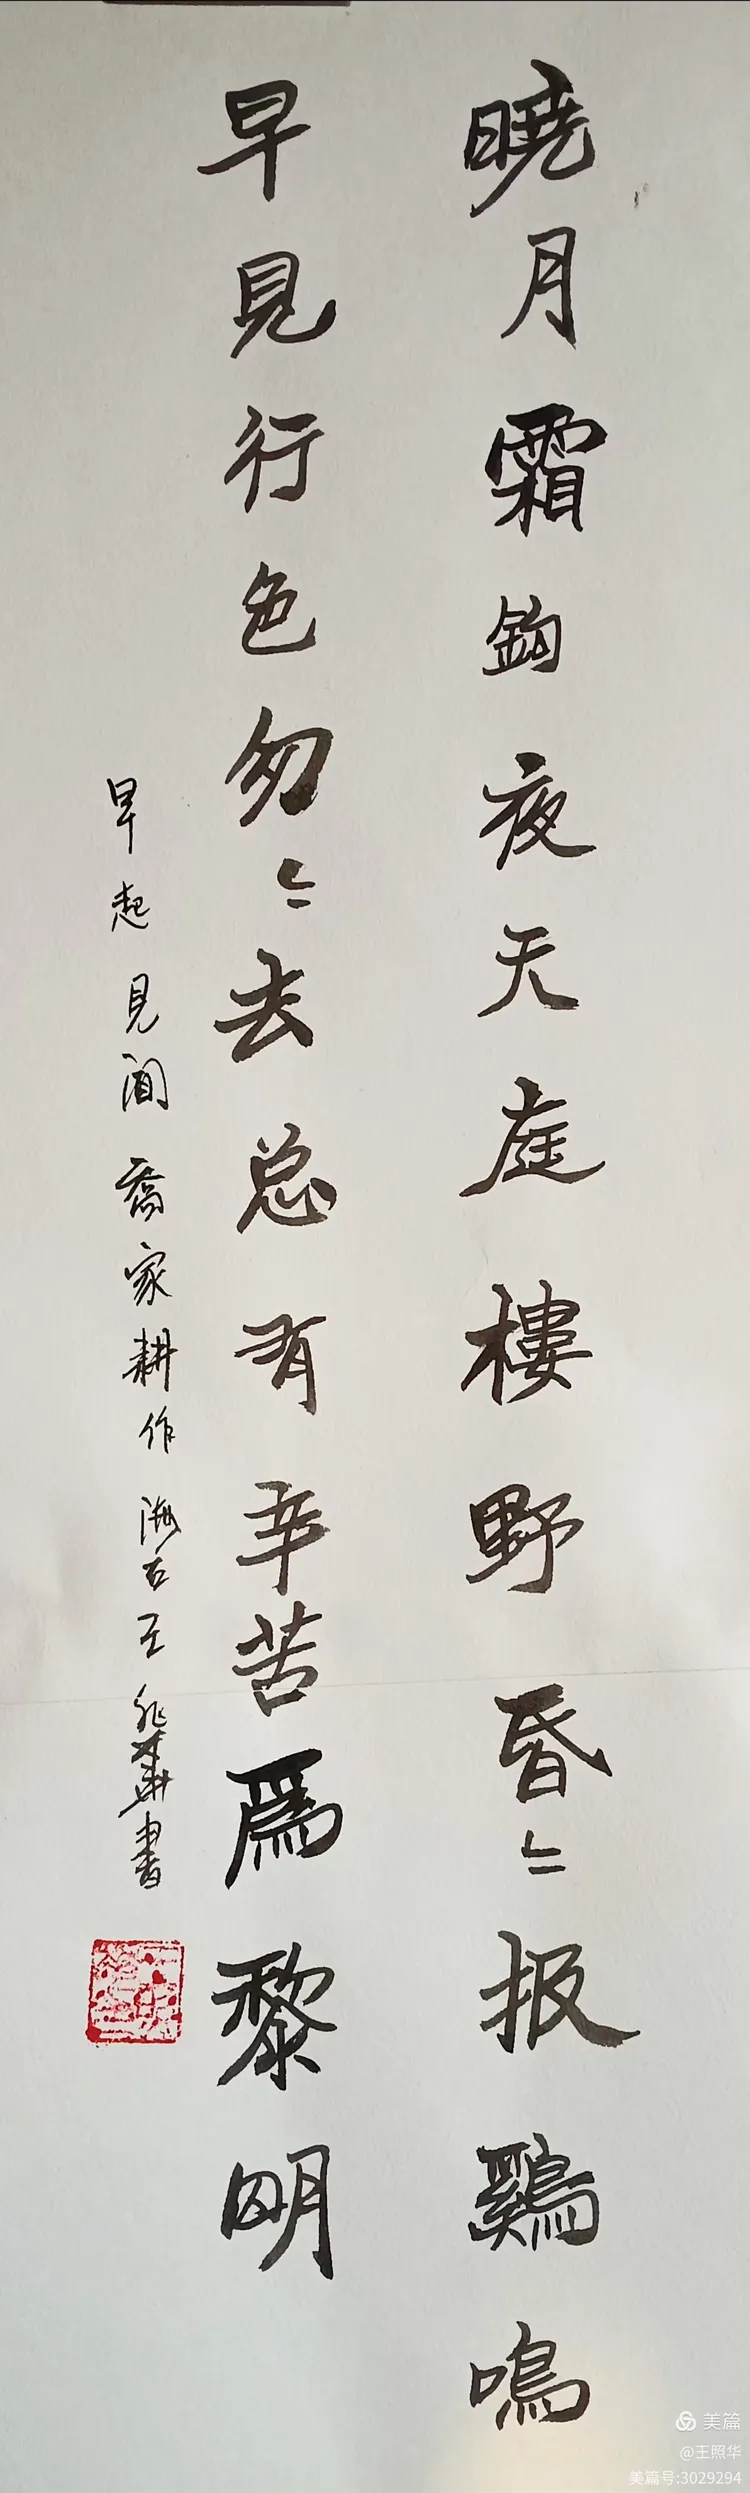 曉月霜鈎夜天庭樓野昏〻报鷄鳴
早見行色匆〻去总有辛苦爲黎明
早起見闻喬家耕作海右王兆華書
美篇
@王照华
美篇号:3029294